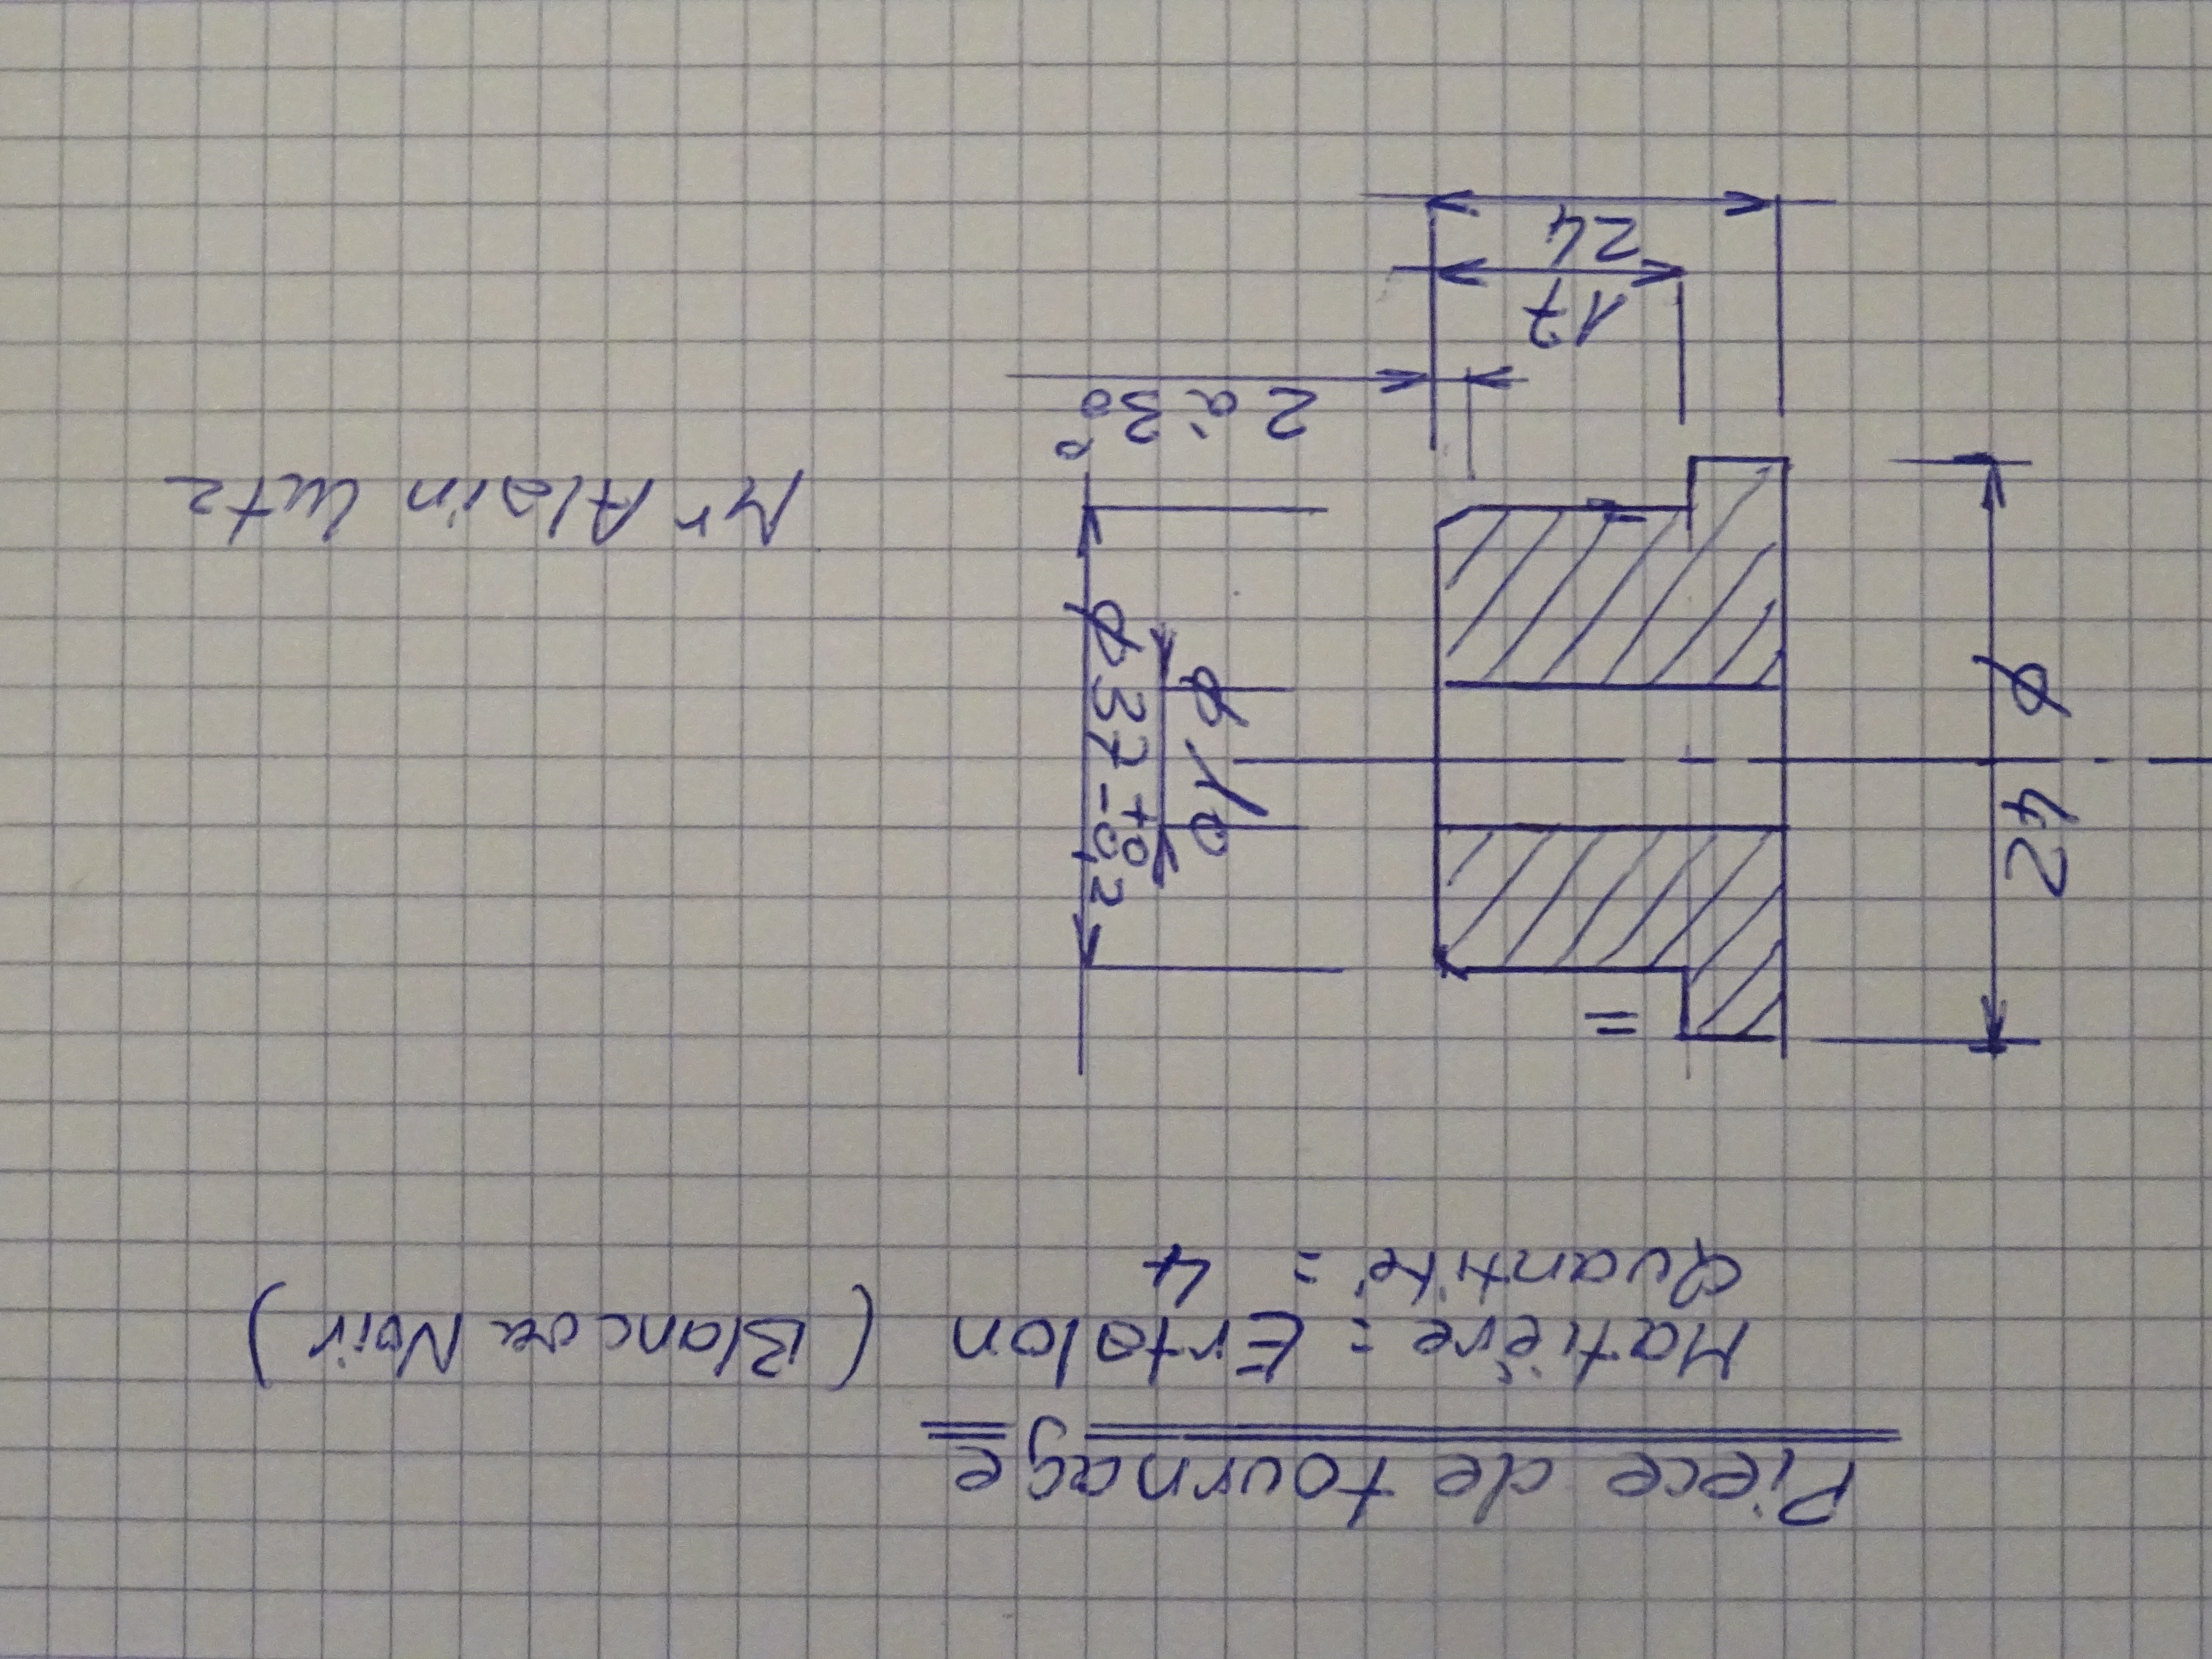 Pièce de tournage
Matière : Ertalon (Blanc ou Noir)
Quantité : 4
=
⌀ 42
⌀ 10
⌀ 37 +0 -0,2
2 à 30°
17
24
Mr Alain Lutz